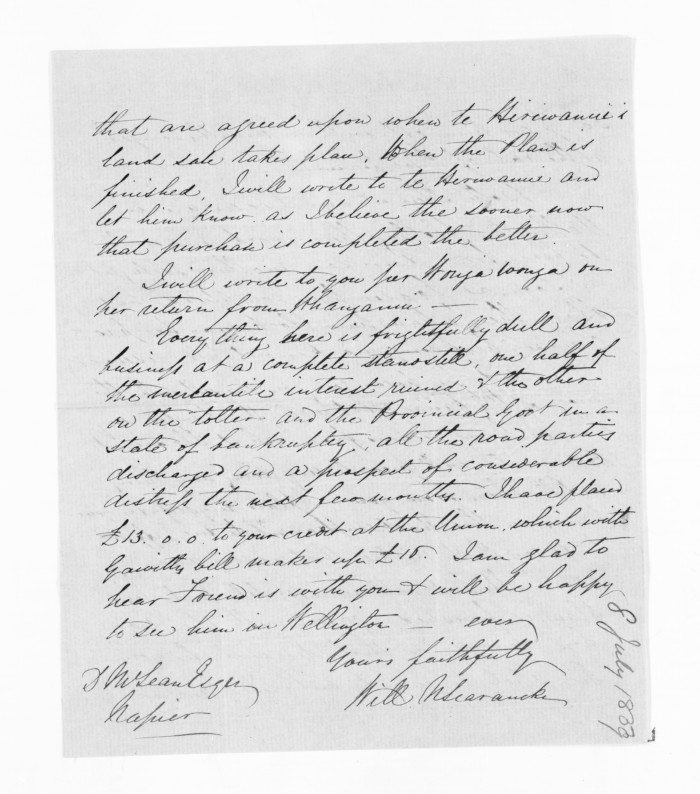 that are agreed upon when te Hiriwanue's
land sale takes place. When the Plan is
finished, I will write to te Hiriwanue and
let him know as I believe the sooner now
that purchase is completed the better.
I will write to you per Wonga wonga on
her return from Whanganui —
Everything here is frightfully dull and
business at a complete standstill, one half of
the mercantile interest ruined & the other
on the totter and the Provincial Govt in a
state of bankruptcy, all the road parties
discharged and a prospect of considerable
distress the next few months. I have placed
£13. 0. 0. to your credit at the Union which with
bill makes up £15. I am glad to
hear Friend is with you & will be happy
to see him in Wellington — ever
Yours faithfully
Will N Searancke
D McLean Esqre
Napier
8 July 18